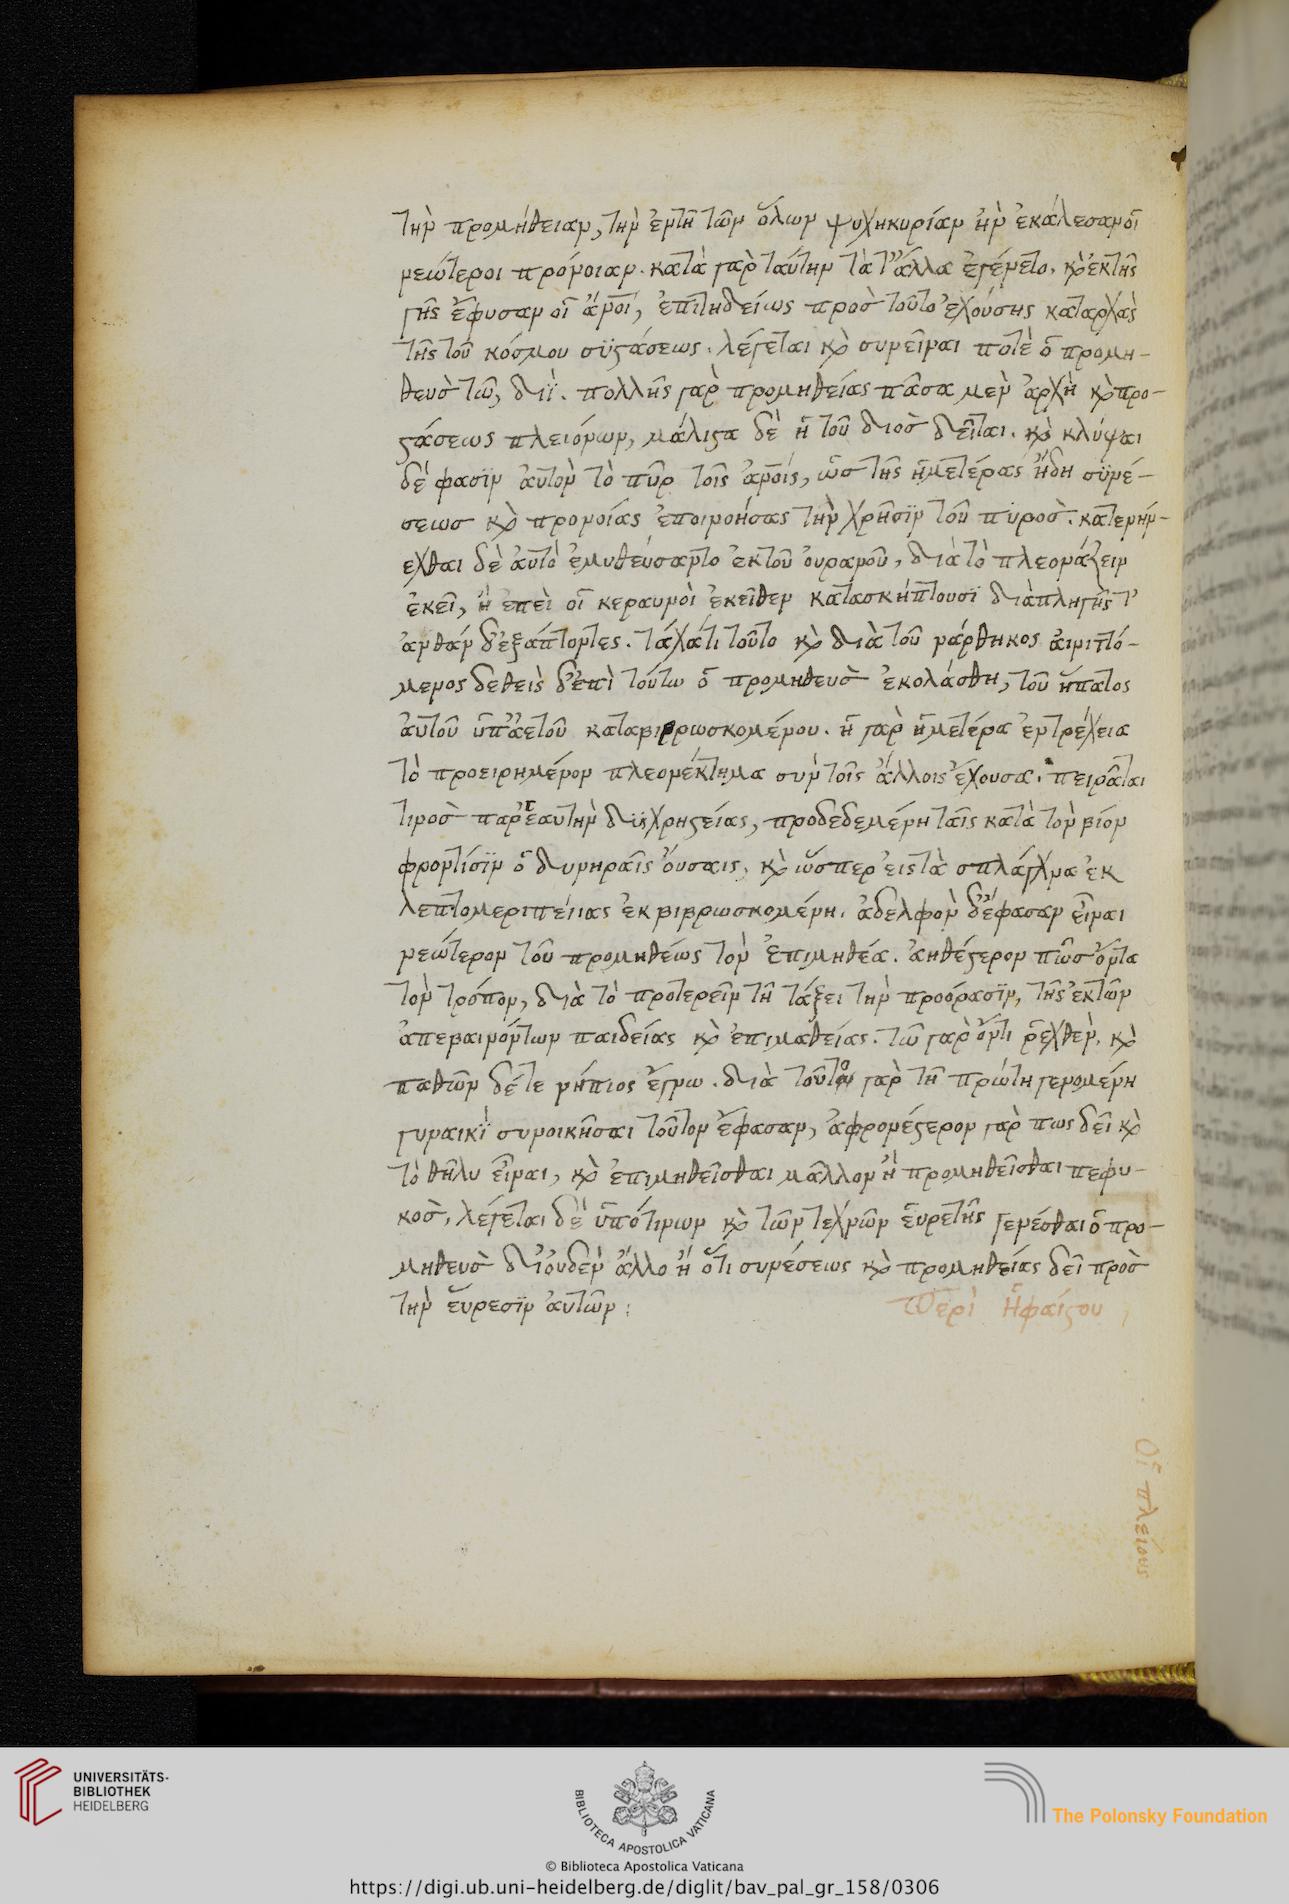 τὴν προμήθειαν, τὴν ἐν τῆ τῶν ὅλων ψυχῆ κυρίαν ἣν ἐκάλεσαν οἱ
νεώτεροι πρόνοιαν. κατὰ γὰρ ταύτην τὰ τἄλλα ἐγένετο. κὲ ἐκ τῆς
γῆς ἔφυσαν οἱ ἄνοι, ἐπιτηδείως πρὸς τοῦτο ἐχούσης καταρχὰς
τῆς τοῦ κόσμου συστάσεως. λέγεται κὲ συνεῖναι ποτὲ ὁ προμη-
θεὺς τῶ, διΐ. πολλῆς γὰρ προμηθείας πᾶσα μὲν ἀρχὴ κὲ προ-
στάσεως πλειόνων, μάλιστα δὲ ἡ τοῦ διὸς δεῖται. κὲ κλύψαι
δέ φασϊν αὐτὸν τὸ πῦρ τοῖς ἀνοις, ὡς τῆς ἡμετέρας ἤδη συνέ-
σεως κὲ προνοίας ἐποινοήσας τὴν χρῆσϊν τοῦ πυρὸς. κατενήν-
εχθαι δὲ αὐτὸ ἐμυθεύσαντο ἐκ τοῦ οὐρανοῦ, διὰ τὸ πλεονάζειν
ἐκεῖ, ἢ ἐπεὶ οἱ κεραυνοὶ ἐκεῖθεν κατασκήπτουσϊ διὰ πληγῆς τ'
ἀνθάν δ' ἐξάπτοντες. τάχά τι τοῦτο κὲ διὰ τοῦ νάρθηκος αἰνιττό-
μενος δεθεὶς δ' ἐπὶ τούτω ὁ προμηθεὺς ἐκολάσθη, τοῦ ἥπατος
αὐτοῦ ὑπ' ἀετοῦ καταβιρρωσκομένου. ἡ γὰρ ἡμετέρα ἐντρέχεια
τὸ προειρημένον πλεονέκτημα σὺν τοῖς ἄλλοις ἔχουσα. πειρᾶται
τινος παρ' ἑαυτὴν δυσχρηστείας, προδεδεμένη ταῖς κατὰ τὸν βίον
φροντίσϊν ὀδυνηραῖς οὔσαις, κὲ ὥσπερ εἰς τὰ σπλάγχνα ἐκ
λεπτομεριπένιας ἐκβιβρωσκομένη. ἀδελφὸν δ' ἔφασαν εἶναι
νεώτερον τοῦ προμηθέως τὸν ἐπιμηθέα. ἀηθέστερον πῶς ὄντα
τὸν τρόπον, διὰ τὸ προτερεῖν τῆ τάξει τὴν προόρασϊν, τῆς ἐκ τῶν
ἀπεβαινόντων παιδείας κὲ ἐπιμαθείας. τῶ γὰρ ὄντι ῥεχθὲν, κὲ
παθῶν δέ τε νήπιος ἔγνω. διὰ τοῦτο γὰρ τῆ πρώτη γενομένη
γυναικϊ συνοικῆσαι τοῦτον ἔφασαν, ἀφρονέστερον γάρ πως δεῖ κὲ
τὸ θῆλυ εἶναι, κὲ ἐπιμηθεῖσθαι μᾶλλον ἢ προμηθεῖσθαι πεφυ-
κὸς, λέγεται δὲ ὑπό τινων κὲ τῶν τεχνῶν εὑρετὴς γενέσθαι ὁ προ-
μηθεὺς δι' οὐδὲν ἄλλο ἢ ὅτι συνέσεως κὲ προμηθείας δεῖ πρὸς
τὴν εὕρεσϊν αὐτῶν:
Περὶ ἡφαίστου
Οἱ πλείους
UNIVERSITÄTS-
BIBLIOTHEK
HEIDELBERG
BIBLIOTECA APOSTOLICA VATICANA
The Polonsky Foundation
© Biblioteca Apostolica Vaticana
https://digi.ub.uni-heidelberg.de/diglit/bav_pal_gr_158/0306